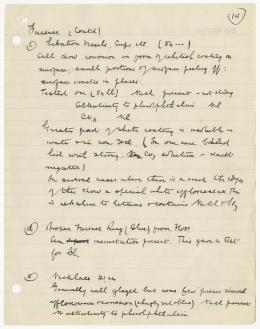 (14)
Faience (Contd)
(c) Libation Vessels, Cups etc. (84 ---)
All show corrosion in form of whitish coating on
surface, small portions of surface peeling off:
surface cracks in places.
Tested one (84 ll) NaCl present - not strong
Alkalinity to phenolphthalein Nil
CO3 Nil
Greater part of white coating is insoluble in
water & in con HCl. (In one case behind
lid with strong CO3 solution - result
negative)
In several cases where there is a crack the edges
of this show a special white efflorescence. This
is alkaline to litmus & contains NaCl &
(d) Broken Faience Ring (blue) from
An incrustation present. This gave a test
for Cl.
(e) Necklace
Generally well glazed but some few pieces showed
efflorescence & corrosion (chiefly not blue) NaCl present
No alkalinity to phenolphthalein